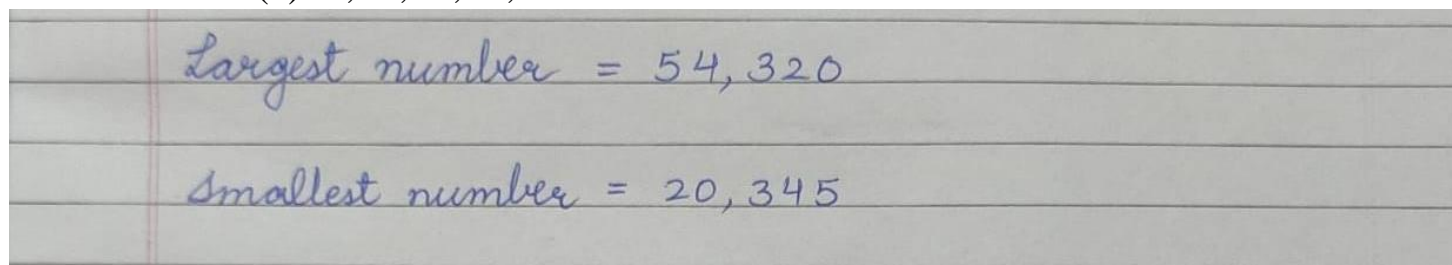 Largest number = 54,320
Smallest number = 20,345